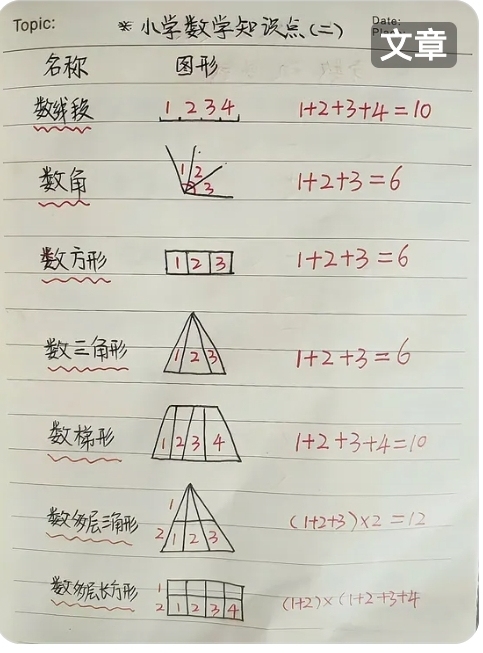 Topic:
* 小学数学知识点(二)
Date:
文章
名称 图形
数线段 1 2 3 4 1+2+3+4=10
数角 1 2 3 1+2+3=6
数方形 1 2 3 1+2+3=6
数三角形 1 2 3 1+2+3=6
数梯形 1 2 3 4 1+2+3+4=10
数多层三角形 1 2 1 2 3 (1+2+3)×2=12
数多层长方形 1 2 1 2 3 4 (1+2)×(1+2+3+4